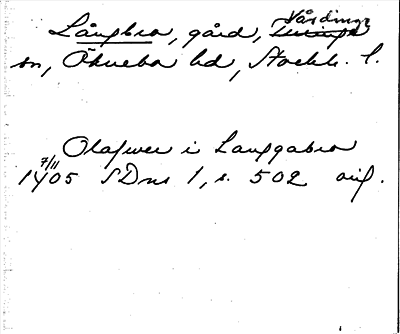 Långbro, gård, Vårdinge
sn, Öknebo hd, Stockh. l.
Olafwer i Langgabro
7/11
1405 SDns 1, s. 502 orig.